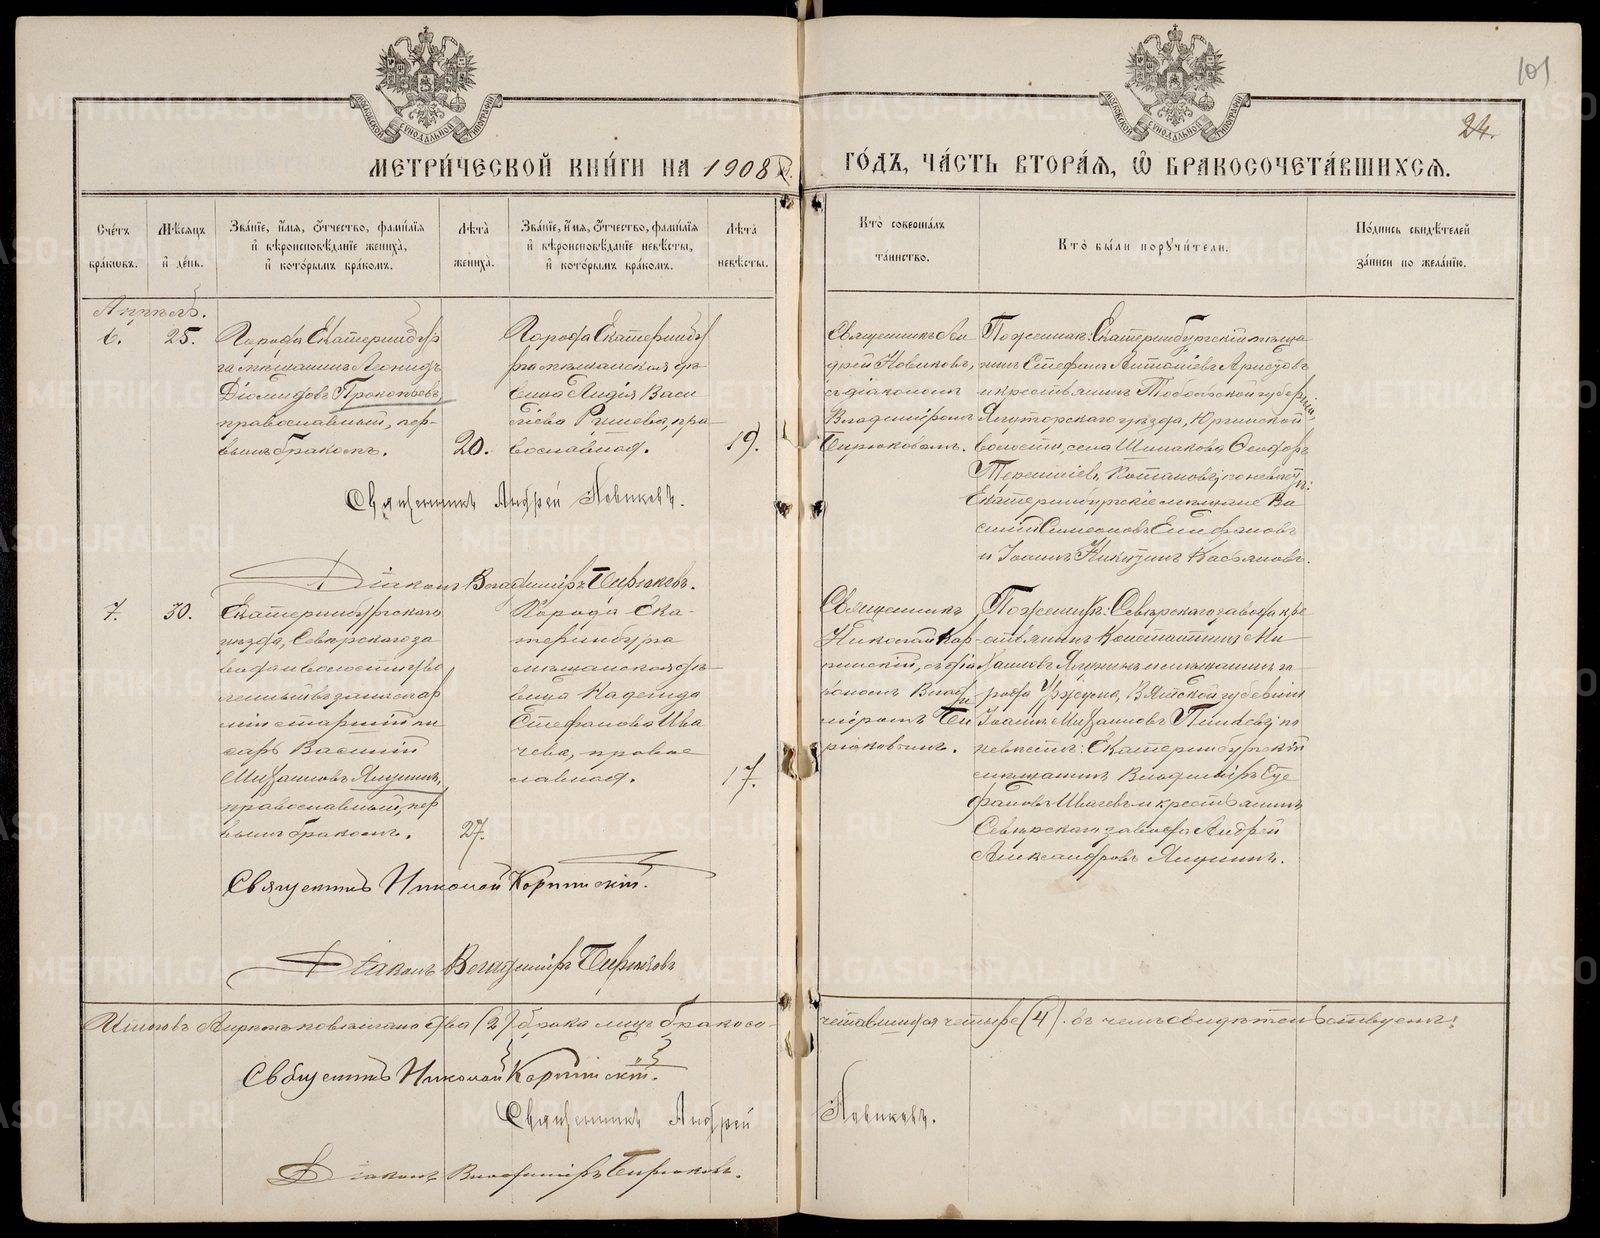 101
24.
МЕТРИЧЕСКОЙ КНИГИ НА 1908 ГОДЪ, ЧАСТЬ ВТОРАЯ, Ѡ БРАКОСОЧЕТАВШИХСЯ.
Счетъ браковъ.
Мѣсяцъ и день.
Званіе, имя, отчество, фамилія и вѣроисповѣданіе жениха, и которымъ бракомъ.
Лѣта жениха.
Званіе, имя, отчество, фамилія и вѣроисповѣданіе невѣсты, и которымъ бракомъ.
Лѣта невѣсты.
Кто совершалъ таинство.
Кто были поручители.
Подпись свидѣтелей записи по желанію.
Апрель.
6.
25.
Города Екатеринбур
га мѣщанинъ Леонидъ
Діомидовъ Прокопьевъ,
православный, пер-
вымъ бракомъ.
20.
Города Екатеринбур
га мѣщанская дѣ-
вица Лидія Васи
ліева Ряшева, пра-
вославная.
19.
Священникъ Ан
дрей Новиковъ,
съ діакономъ
Владиміромъ
Бирюковымъ.
По женихѣ: Екатеринбургскій мѣща
нинъ Стефанъ Антоніевъ
и крестьянинъ Тобольской губерніи,
Ялуторскаго уѣзда, Юргинской
волости, села Шипакова Ѳеодоръ
Терентіевъ Потановъ; по невѣстѣ:
Екатеринбургскіе мѣщане Ва
силій Симеоновъ Епифановъ
и Іоаннъ Никитинъ Касьяновъ.
Священникъ Андрей Новиковъ.
Діаконъ Владиміръ Бирюковъ.
7.
30.
Екатеринбургскаго
уѣзда, Северскаго за
вода и волости, уво
ленный въ запасъ ар
міи старшій пи
сарь Василій
Михаиловъ Ялунинъ,
православный, пер
вымъ бракомъ.
27.
Города Ека-
теринбурга
мѣщанская дѣ-
вица Надежда
Стефанова Ива
чева, правос
лавная.
17.
Священникъ
Николай Кор-
пинскій, съ діа
кономъ Влади
міромъ Би
рюковымъ.
По женихѣ: Северскаго завода кре
стьянинъ Константинъ Ми
хаиловъ Ялунинъ и мѣщанинъ го
рода Уржума, Вятской губерніи
Іоаннъ Михаиловъ; по
невѣстѣ: Екатеринбургскій
мѣщанинъ Владиміръ Сте
фановъ Ивачевъ и крестьянинъ
Северскаго завода Андрей
Александровъ Ялунинъ.
Священникъ Николай Корпинскій.
Діаконъ Владиміръ Бирюковъ
Итого въ Апрелѣ повѣнчано два (2) брака лицъ бракосо-
четавшихся четыре (4). въ чемъ свидѣтельствуемъ:
Священникъ Николай Корпинскій.
Священникъ Андрей Новиковъ.
Діаконъ Владиміръ Бирюковъ.
METRIKI.GASO-URAL.RU